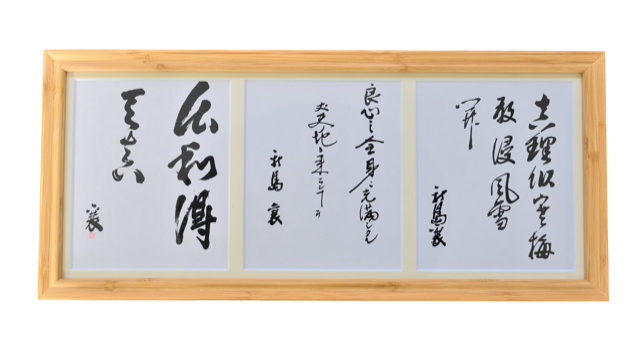 真理似寒梅
敢侵風雪
開
新島襄
良心之全身ニ充満シタル
丈夫ノ起リ来ラン事ヲ
新島襄
得
襄